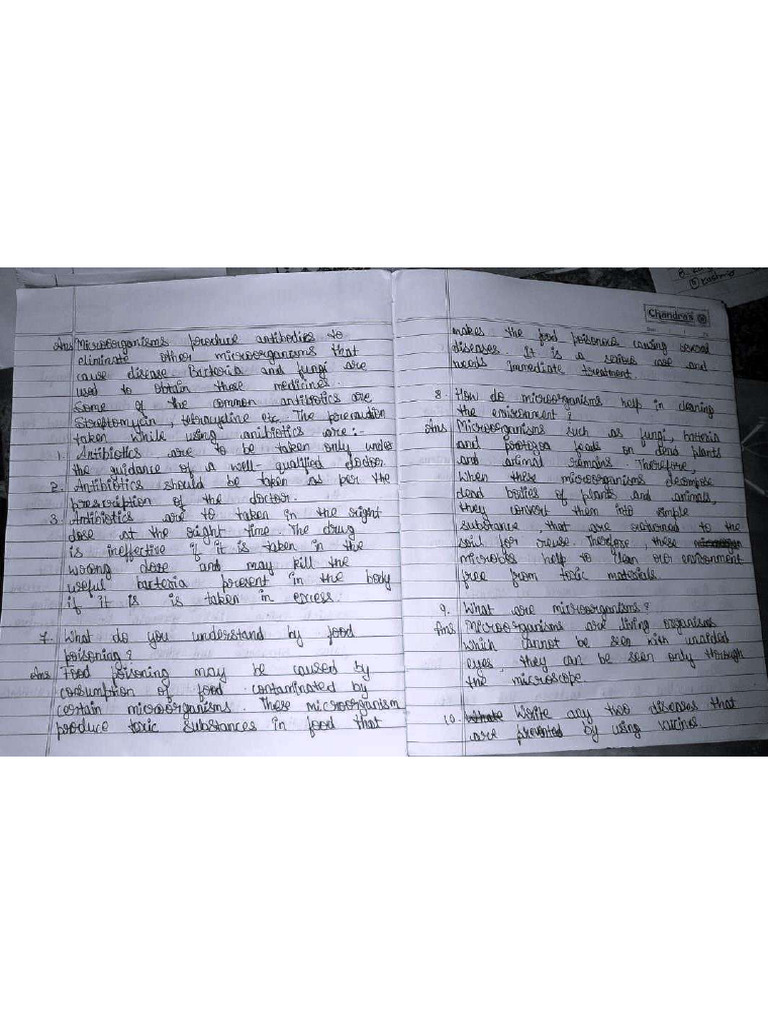 Ans Microorganisms produce antibodies to
eliminate other microorganisms that
cause disease. Bacteria and fungi are
used to obtain these medicines.
Some of the common antibiotics are
streptomycin, tetracycline etc. The precaution
taken while using antibiotics are:-
1. Antibiotics are to be taken only under
the guidance of a well-qualified doctor.
2. Antibiotics should be taken as per the
prescription of the doctor.
3. Antibiotics are to taken in the right
dose at the right time. The drug
is ineffective if it is taken in the
wrong dose and may kill the
useful bacteria present in the body
if it is is taken in excess.
7. What do you understand by food
poisoning?
Ans Food poisoning may be caused by
consumption of food contaminated by
certain microorganisms. These microorganism
produce toxic substances in food that
Chandra's
makes the food poisonous causing several
diseases. It is a serious case and
needs immediate treatment.
8. How do microorganisms help in cleaning
the environment?
Ans Microorganisms such as fungi, bacteria
and protozoa feeds on dead plants
and animal remains. Therefore,
when these microorganisms decompose
dead bodies of plants and animals,
they convert them into simple
substance, that are returned to the
soil for reuse. Therefore, these
microbes help to clean our environment
free from toxic materials.
9. What are microorganisms?
Ans Microorganisms are living organisms
which cannot be seen with unaided
eyes, they can be seen only through
the microscope.
10. Write any two diseases that
are prevented by using vaccines.